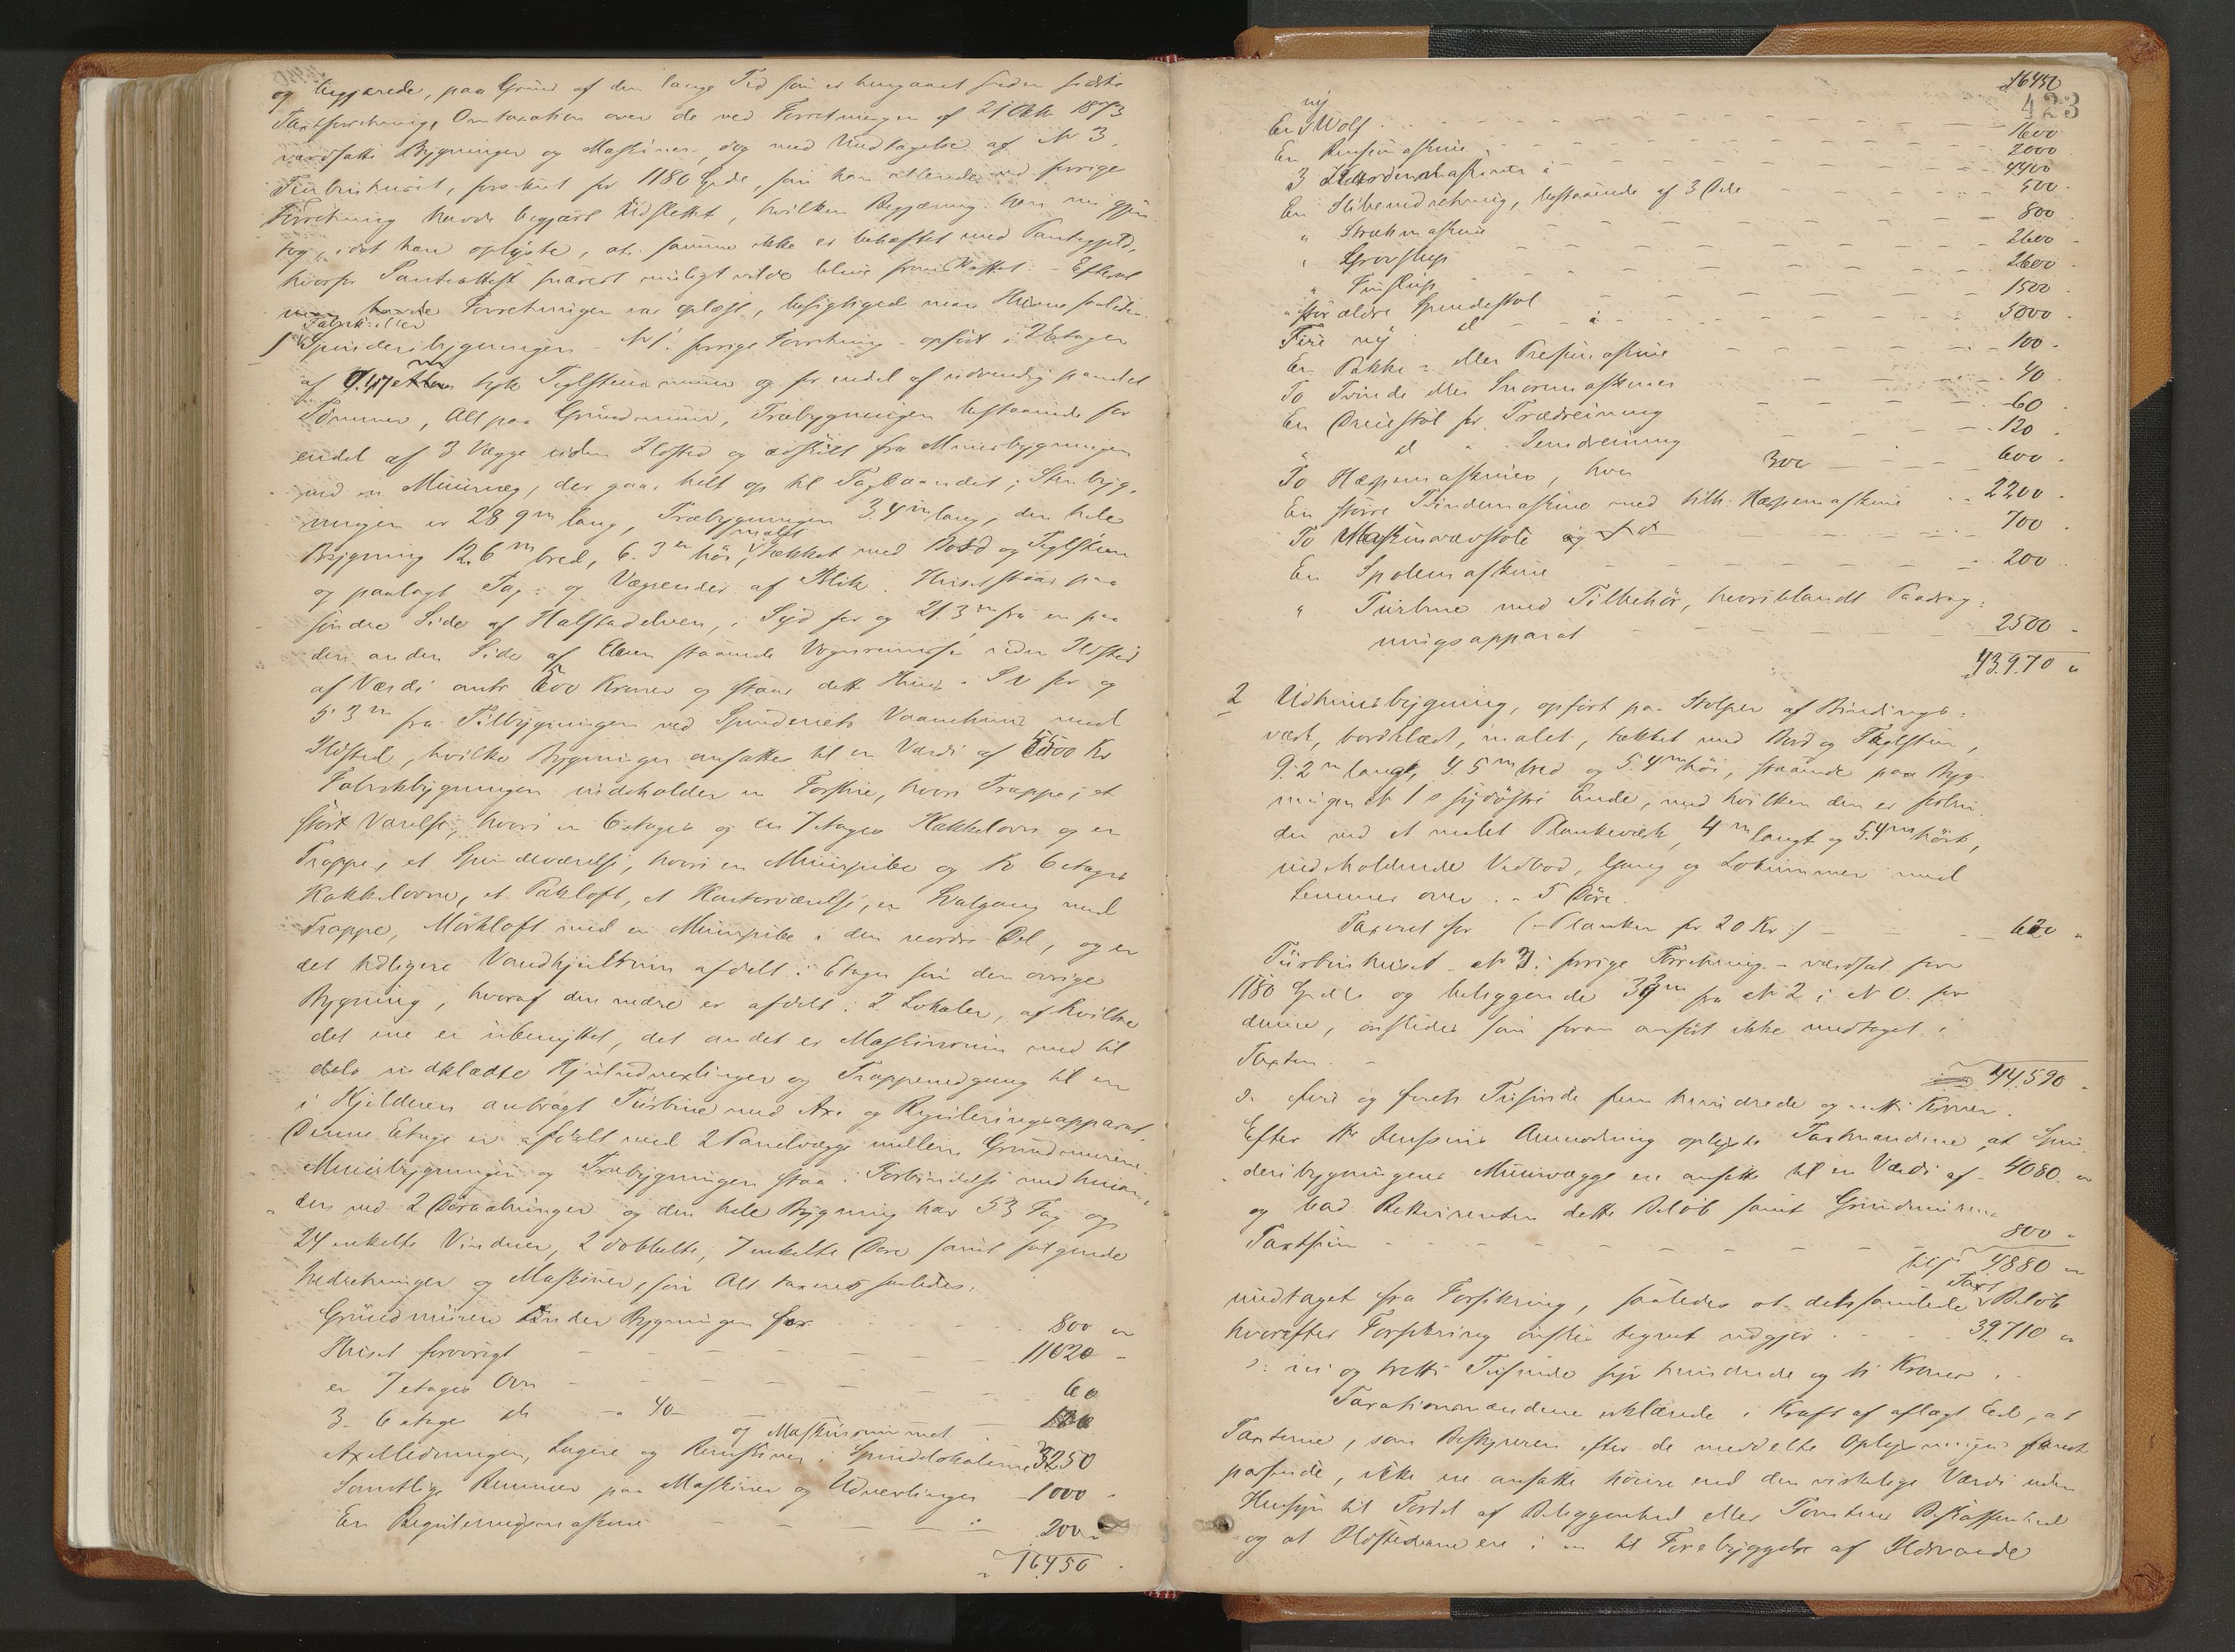 og begjærede, paa Grund af den lange Tid som er hengaaet siden sidste
Taxtforretning, Omtaxation over de ved Forretningen af 21 Okt 1873
værdsatte Bygninger og Maskiner, dog med Undtagelse af N 3,
Turbinhuset, forsikret for 1180 Spdr, som han allerede ved forrige
Forretning havde begjært Udslettet, hvilken Begjæring han nu gjen
tog, idet han oplyste, at samme ikke er behæftet med Pantegjæld,
hvorfor Panteattest snarest muligt vilde blive fremskaffet. - Efterat
man havde Forretningen var oplæst, besigtigede man Husene saaledes
Fabrik eller
1 Spinderibygningen - N 1 i forrige Forretning - opført i 2 Etager
af 0.47 m tyk Teglstensmuur og for endel af udvendig panelet
Tømmer, Alt paa Grundmuur, Træbygningen bestaaende for
endel af 3 Vægge uden Ildsted og adskilt fra Muurbygningen
ved en Muurvæg, der gaar helt op til Tagbaandet; Stenbyg-
ningen er 28.9 m lang, Træbygningen 3.4 m lang, den hele
malet
Bygning 12.6 m bred, 6.3 m høi, tækket med Bord og Teglsten
og paalagt Tag- og Vægrender af Blik. Huset staar paa
søndre Side af Halstadelven, i Syd for og 21.3 m fra en paa
den anden Side af Elven staaende Vognremisse uden Ildsted
af Værdi antr 800 Kroner og staar dette Huus i SV for og
5.3 m fra Tilbygningen ved Spinderiets Vaanehuus med
Ildsted, hvilke Bygninger ansattes til en Værdi af 5500 Kr
Fabrikbygningen indeholder en Forstue, hvori Trappe, et
stort Værelse, hvori en 6etages og en 7etages Kakkelovn og en
Trappe, et Spindeværelse, hvori en Muurpibe og to 6etages
Kakkelovne, et Pakloft, et Kontorværelse, en Svalgang med
Trappe, Mørkloft med en Muurpibe i den nordre Del, og er
det tidligere Vandhjulsrum afdelt i Etager som den øvrige
Bygning, hvoraf den nedre er afdelt i 2 Lokaler, af hvilke
det ene er ubenyttet, det andet er Maskinrum med til
dels indklædte Hjuludvexlinger og Trappenedgang til en
i Kjelderen anbragt Turbine med Axe og Reguleringsapparat.
Denne Etage er afdelt med 2 Panelvægge mellem Grundmurene.
Muurbygningen og Træbygningen staa i Forbindelse med hinan-
den ved 2 Døraabninger og den hele Bygning har 53 Fag og
24 enkelte Vinduer, 2 dobbelte, 7 enkelte Døre samt følgende
Indretninger og Maskiner, som Alt taxeres saaledes:
Grundmuren under Bygningen for 800 "
Huset forøvrigt 11020 "
en 7 etages Ovn 60
3 - 6 etages do " 40 - 120
og Maskinrummet
Axelledninger, Lagere og Remskiver i Spindelokalerne 3250
Samtlige Remmer paa Maskiner og Udvexlinger 1000 "
En Reguleringsmaskine 200 "
" 16450 "
16450
423
ny
En Wolf 1600
En Rensemaskine 2000
3 Kardemaskiner 4400
En Slibeindretning, bestaaende af 3 Dele 500
" Strækmaskine 800
" Grovflyer 2600
" Finflyer 2600
" stor ældre Spindestol 1500
Fire ny do 5000
En Pakke- eller Pressemaskine 100
To Tvinde eller Snoremaskiner 40
En Dreiestol for Trædreining 60
" do " Jerndreining 120
To Haspemaskiner, hver 300 600
En større Tvindemaskine med tilh. Haspemaskine 2200
To Maskinvævstole 700
En Spolemaskine 200
" Turbine med Tilbehør, heriblandt Paadrag-
ningsapparat 2500
43,970 "
2 Udhuusbygning, opført paa Stolper af Bindings-
værk, bordklædt, malet, tækket med Bord og Teglsten,
9.2 m lang, 4.5 m bred og 5.4 m høi, staaende paa Byg-
ningen N 1s sydøstre Ende, med hvilken den er forbun
den ved et malet Plankeværk, 4 m langt og 5.4 m høit,
indeholdende Vedbod, Gang og Lokummer med
Lemmer over. - 5 Døre.
Taxeret for (: Planken for 20 Kr :) 620 "
Turbinhuset - N 3 i forrige Forretning - værdsat for
1180 Spdlr og beliggende 33 m fra N 2 i N O. for
denne, ønskedes som foran anført ikke medtaget i
Taxten. -
44,590 "
o: fire og firti Tusinde fem hundrede og nitti Kroner.
Efter Hr Jenssens Anmodning oplyste Taxtmændene, at Spin
deribygningens Muurvægge ere ansatte til en Værdi af 4080 "
og bad Rekvirenten dette Beløb samt Grundmurens
Taxtsum 800 "
tils. 4880 "
Taxt
undtaget fra Forsikring, saaledes at det samlede Beløb
hvorefter Forsikring ønskes tegnet udgjør 39,710 "
o: ni og tretti Tusinde syv hundrede og ti Kroner.
Taxationsmændene erklærede i Kraft af aflagt Eed, at
Taxterne, som Bestyreren efter de meddelte Oplysninger fandt
passende, ikke ere ansatte høiere end den virkelige Værdi uden
Hensyn til Fordel af Beliggenhed eller Tomtens Beskaffenhed
og at Ildstederne ere i en til Forebyggelse af Ildsvaade